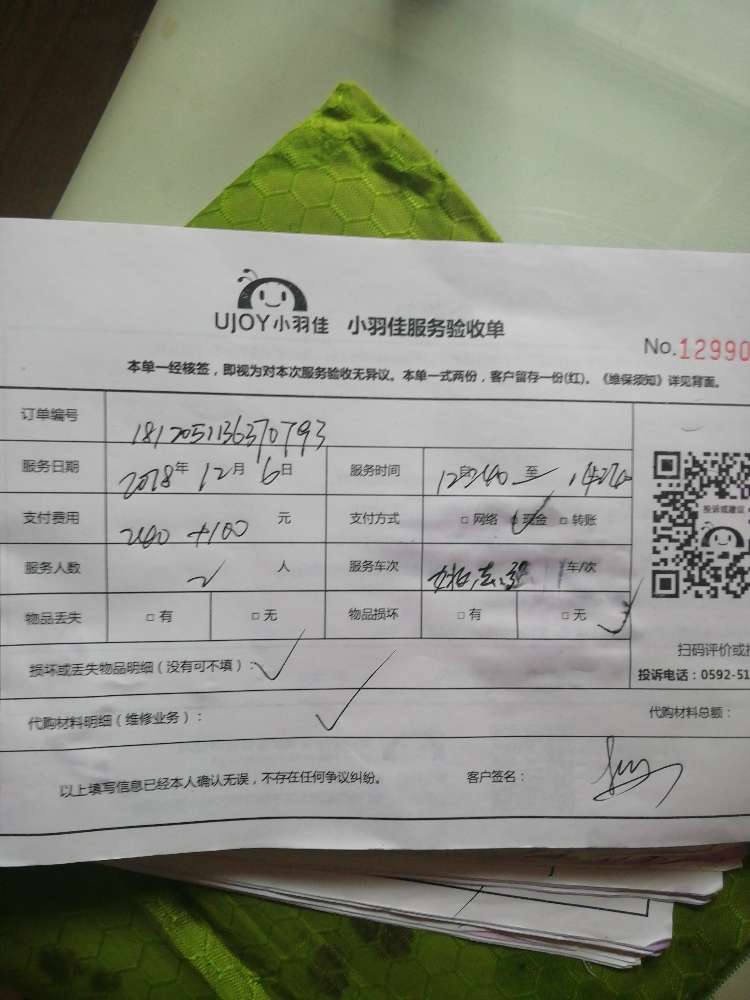 UJOY小羽佳 小羽佳服务验收单
No.12990
本单一经核签，即视为对本次服务验收无异议。本单一式两份，客户留存一份(红)。《维保须知》详见背面。
订单编号 1812051136370793
服务日期 2018年12月6日 服务时间 至
支付费用 +100 元 支付方式 □网络 □现金 □转账
服务人数 2 人 服务车次 车/次
投诉或建议
物品丢失 □有 □无 物品损坏 □有 □无
扫码评价或
损坏或丢失物品明细（没有可不填）：
投诉电话：0592-51
代购材料明细（维修业务）： 代购材料总额：
以上填写信息已经本人确认无误，不存在任何争议纠纷。 客户签名：